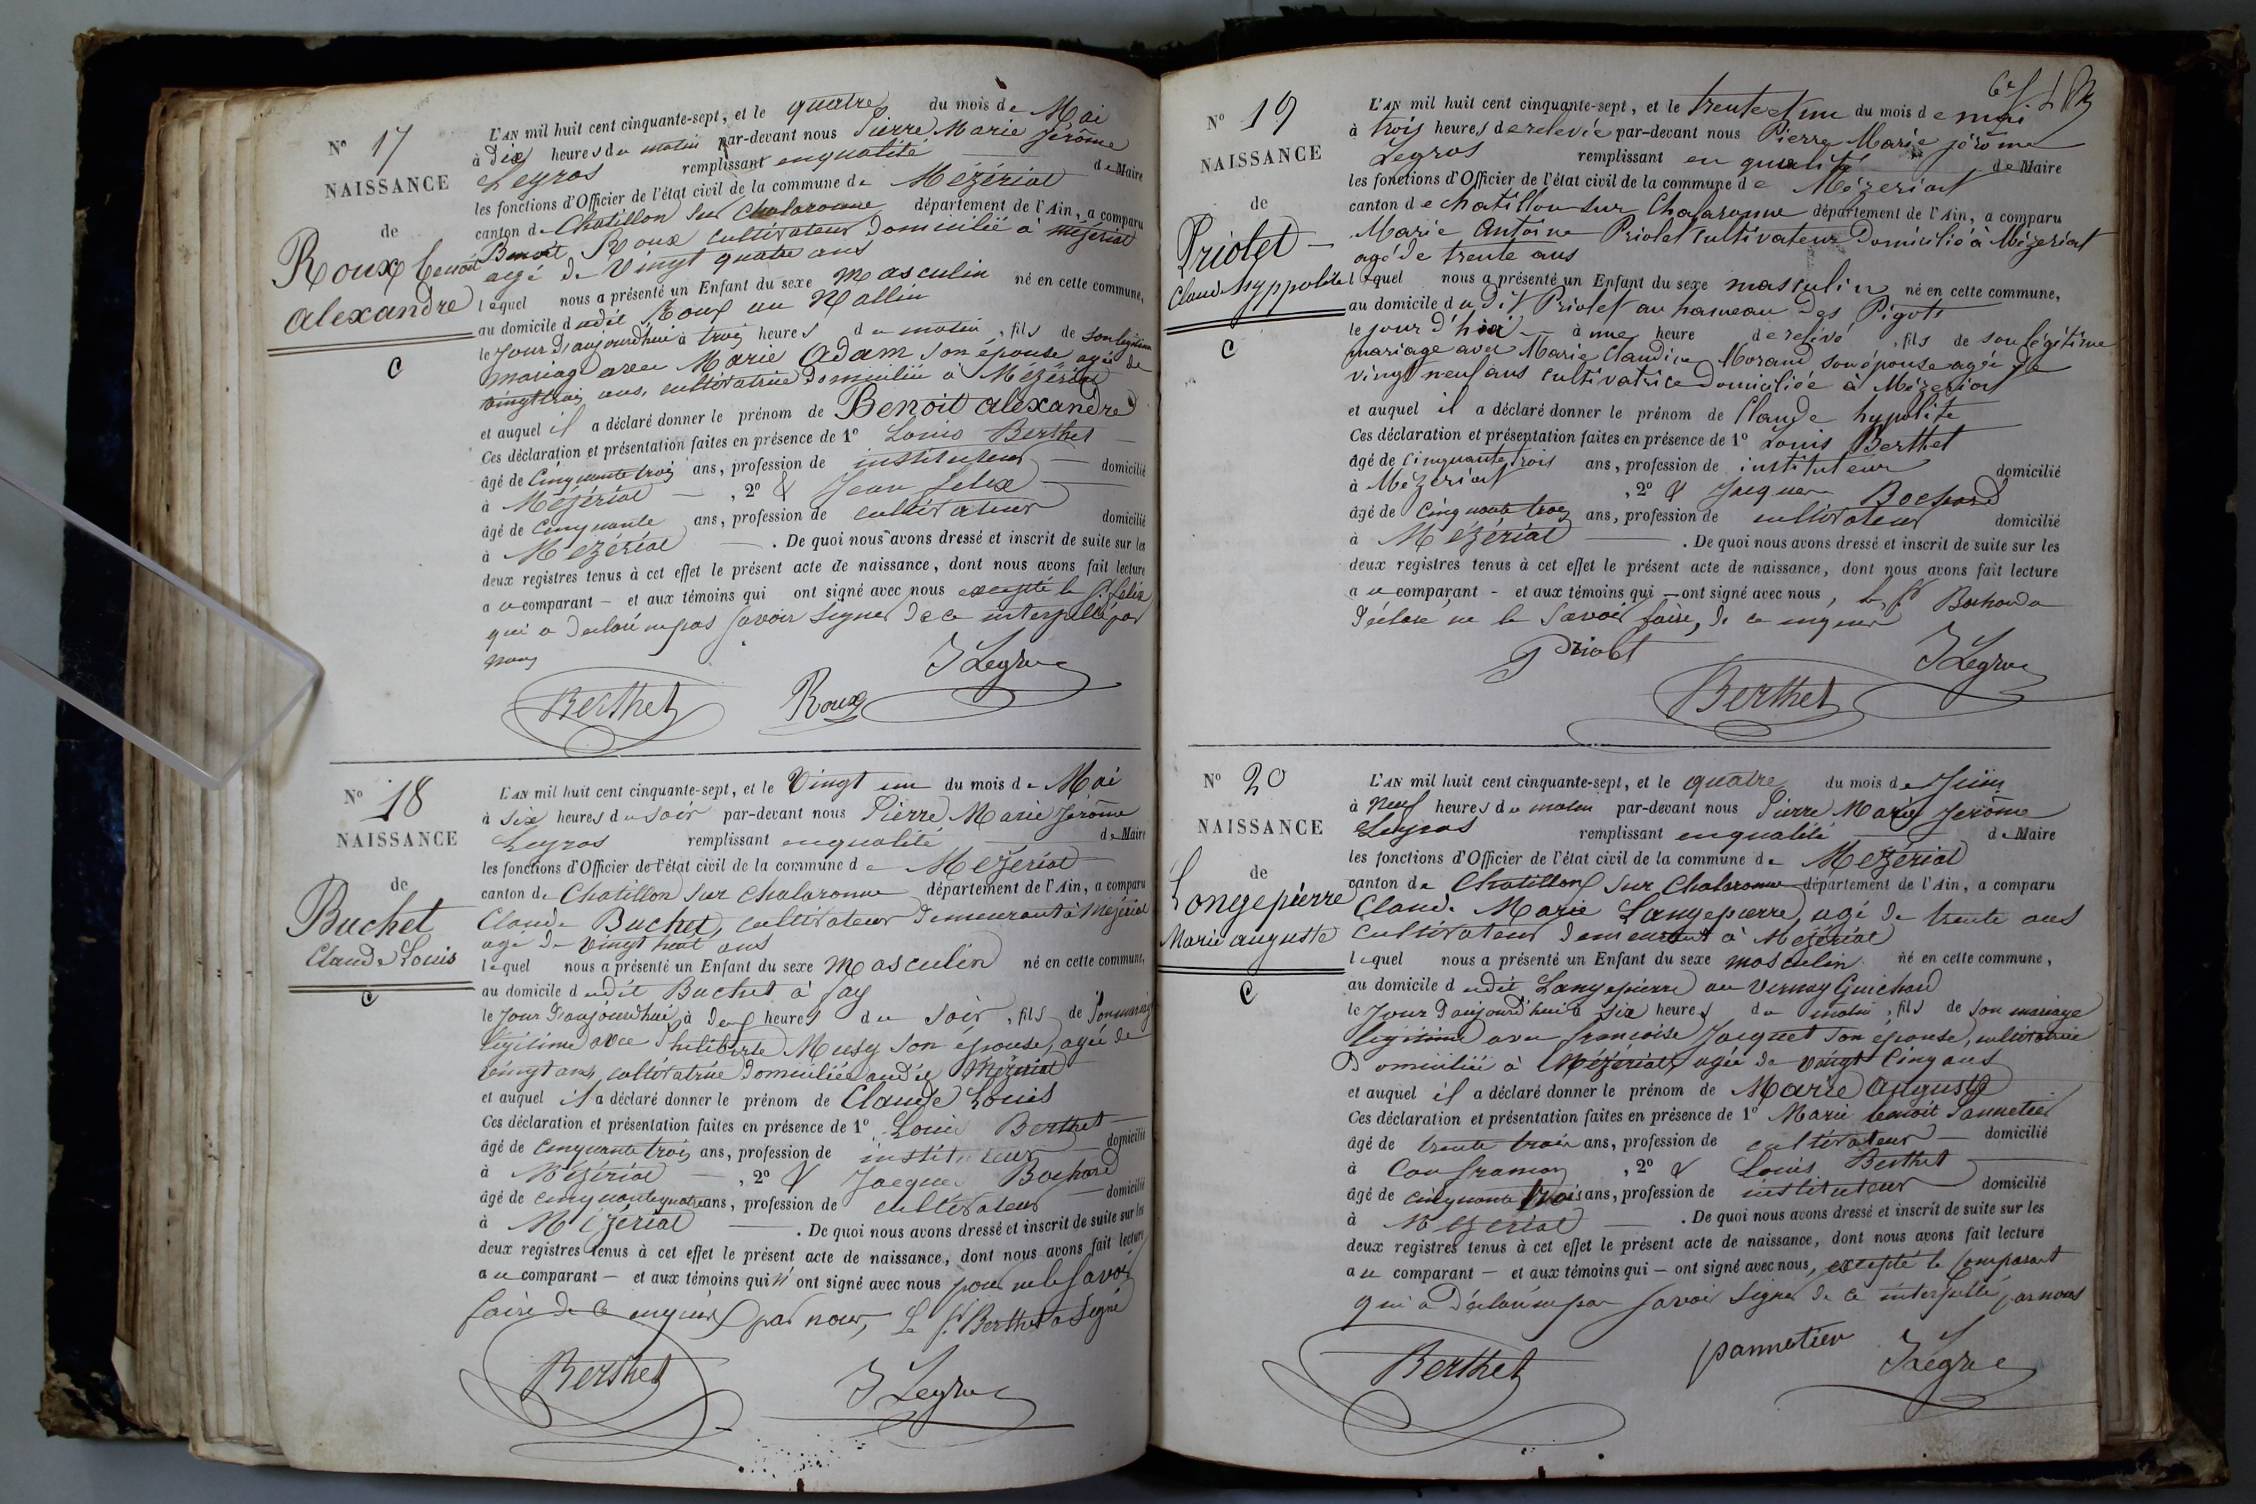 N° 17
NAISSANCE
de
Roux benoit
alexandre
C
L'AN mil huit cent cinquante-sept, et le quatre du mois de Mai
à Dix heures du matin par-devant nous Pierre Marie Jérôme
Legros remplissant en qualité de Maire
les fonctions d'Officier de l'état civil de la commune de Mézériat
canton de Chatillon sur Chalaronne département de l'Ain, a comparu
Benoit Roux cultivateur domicilié à Mézériat
agé de Vingt quatre ans
lequel nous a présenté un Enfant du sexe Masculin né en cette commune,
au domicile dudit Roux au
le Jour D'aujourd'hui à trois heures du matin, fils de son légitime
mariage avec Marie Adam son épouse agée de
vingt trois ans, cultivatrice Domiciliée à Mézériat
et auquel il a déclaré donner le prénom de Benoit alexandre
Ces déclaration et présentation faites en présence de 1° Louis Berthet
âgé de Cinquante trois ans, profession de instituteur domicilié
à Mézériat, 2° & Jean felix
âgé de Cinquante ans, profession de cultivateur domicilié
à Mézériat. De quoi nous avons dressé et inscrit de suite sur les
deux registres tenus à cet effet le présent acte de naissance, dont nous avons fait lecture
au comparant — et aux témoins qui ont signé avec nous excepté le S. félix
qui a déclaré ne pas savoir signer de ce interpellé par
nous
JLegros
Berthet Roux
N° 18
NAISSANCE
de
Buchet
Claude Louis
C
L'AN mil huit cent cinquante-sept, et le Vingt un du mois de Mai
à six heures du soir par-devant nous Pierre Marie Jérôme
Legros remplissant en qualité de Maire
les fonctions d'Officier de l'état civil de la commune de Mézériat
canton de Chatillon sur chalaronne département de l'Ain, a comparu
Claude Buchet, cultivateur Demeurant à Mézériat
agé de Vingt huit ans
lequel nous a présenté un Enfant du sexe Masculin né en cette commune,
au domicile dudit Buchet à
le Jour D'aujourd'hui, à Deux heures du soir, fils de Son mariage
légitime avec Philiberte Musy son épouse, agée de
vingt ans, cultivatrice Domiciliée audit Mézériat
et auquel il a déclaré donner le prénom de Claude Louis
Ces déclaration et présentation faites en présence de 1° Louis Berthet
âgé de cinquante trois ans, profession de instituteur domicilié
à Mézériat, 2° & Jacques Bochard
âgé de cinquante quatre ans, profession de cultivateur domicilié
à Mézériat. De quoi nous avons dressé et inscrit de suite sur les
deux registres tenus à cet effet le présent acte de naissance, dont nous avons fait lecture
au comparant — et aux témoins qui n'ont signé avec nous pour ne le Savoir
faire de ce enquis par nous, Le S. Berthet a Signé
Berthet JLegros
N° 19
NAISSANCE
de
Priolet —
Claude hyppolite
C
L'AN mil huit cent cinquante-sept, et le trente et un du mois de mai
à trois heures de relevée par-devant nous Pierre Marie jérôme
Legros remplissant en qualité de Maire
les fonctions d'Officier de l'état civil de la commune de Mézeriat
canton de chatillon sur Chalaronne département de l'Ain, a comparu
Marie Antoine Priolet cultivateur Domicilié à Mézeriat
agé de trente ans
lequel nous a présenté un Enfant du sexe masculin né en cette commune,
au domicile dudit Priolet au hameau des Pigots
le jour d'hier à une heure de relevé, fils de son légitime
mariage avec Marie Claudine Morand son épouse agée de
vingt neuf ans cultivatrice domiciliée à Mézeriat
et auquel il a déclaré donner le prénom de Claude hypolite
Ces déclaration et présentation faites en présence de 1° Louis Berthet
âgé de cinquante trois ans, profession de instituteur domicilié
à Mézériat, 2° & Jacques Bochard
âgé de Cinquante trois ans, profession de cultivateur domicilié
à Mézériat. De quoi nous avons dressé et inscrit de suite sur les
deux registres tenus à cet effet le présent acte de naissance, dont nous avons fait lecture
au comparant - et aux témoins qui — ont signé avec nous, le S. Bochard a
Déclaré ne le savoir faire, de ce enquis
Priolet JLegros
Berthet
N° 20
NAISSANCE
de
Longepierre
Marie auguste
C
L'AN mil huit cent cinquante-sept, et le quatre du mois de Juin
à Neuf heures du matin par-devant nous Pierre Marie Jerôme
Legros remplissant en qualité de Maire
les fonctions d'Officier de l'état civil de la commune de Mézériat
canton de Chatillon sur Chalaronne département de l'Ain, a comparu
Claude Marie Longepierre, agé de trente ans
Cultivateur demeurant à Mézériat
lequel nous a présenté un Enfant du sexe masculin né en cette commune,
au domicile dudit Longepierre au Vernay Guichard
le Jour D'aujourd'hui à six heures du matin, fils de son mariage
légitime avec françoise Jacquet son épouse, cultivatrice
Domiciliée à Mézériat, agée de vingt Cinq ans
et auquel il a déclaré donner le prénom de Marie Auguste
Ces déclaration et présentation faites en présence de 1° Marie benoit Pannetier
âgé de trente trois ans, profession de cultivateur domicilié
à Confrançon, 2° & Louis Berthet
âgé de cinquante trois ans, profession de instituteur domicilié
à Mézériat. De quoi nous avons dressé et inscrit de suite sur les
deux registres tenus à cet effet le présent acte de naissance, dont nous avons fait lecture
au comparant — et aux témoins qui — ont signé avec nous, excepté le Comparant
qui a Déclaré ne pas savoir signer de ce interpellé, par nous
Berthet pannetier JLegros